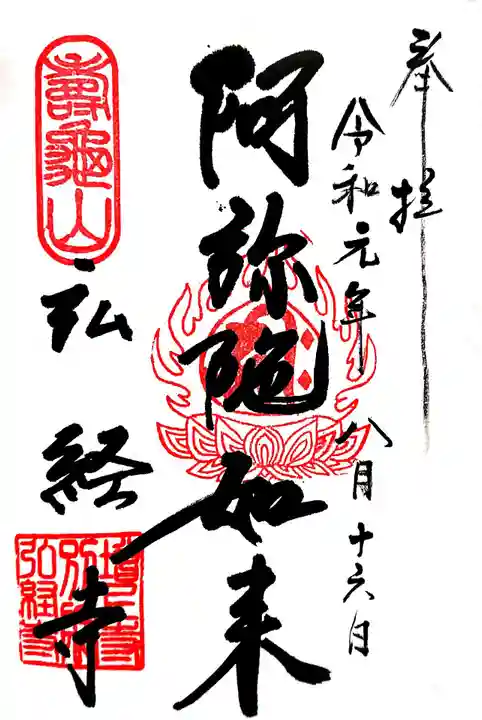 奉拝
令和元年八月十六日
阿弥陀如来
壽龜山
弘経寺